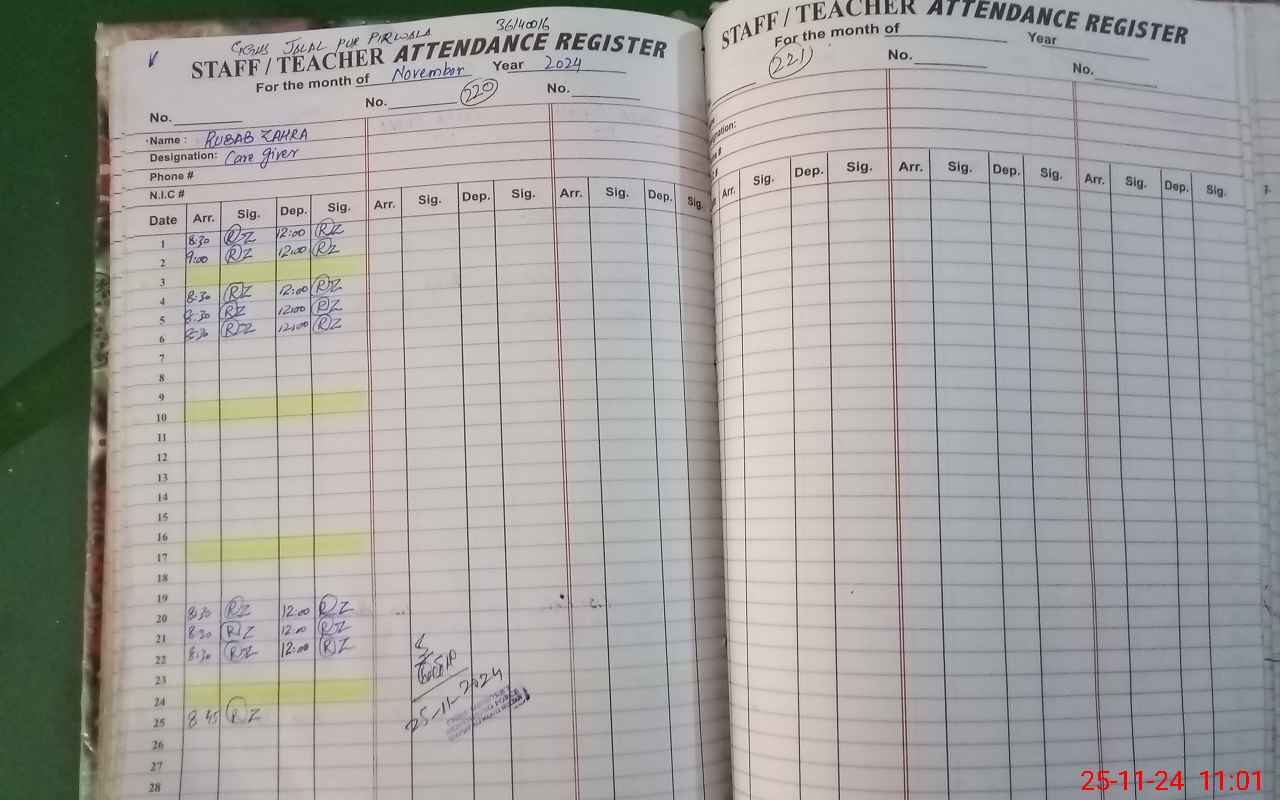 36/40016
JALAL PUR PIRWALA
STAFF / TEACHER ATTENDANCE REGISTER
For the month of November Year 2024
No. No. 220 No.
Name : RUBAB ZAHRA
Designation: Care giver
Phone #
N.I.C #
Date Arr. Sig. Dep. Sig. Arr. Sig. Dep. Sig. Arr. Sig. Dep. Sig.
1 8:30 RZ 12:00 RZ
2 9:00 RZ 12:00 RZ
3
4 8:30 RZ 12:00 RZ
5 8:30 RZ 12:00 RZ
6 8:30 RZ 12:00 RZ
7
8
9
10
11
12
13
14
15
16
17
18
19
20 8:30 RZ 12:00 RZ
21 8:30 RZ 12:00 RZ
22 8:30 RZ 12:00 RZ
23
24
25 8:45 RZ
25-11-2024
26
27
28
STAFF / TEACHER ATTENDANCE REGISTER
For the month of Year
221 No. No.
Arr. Sig. Dep. Sig. Arr. Sig. Dep. Sig. Arr. Sig. Dep. Sig.
25-11-24 11:01